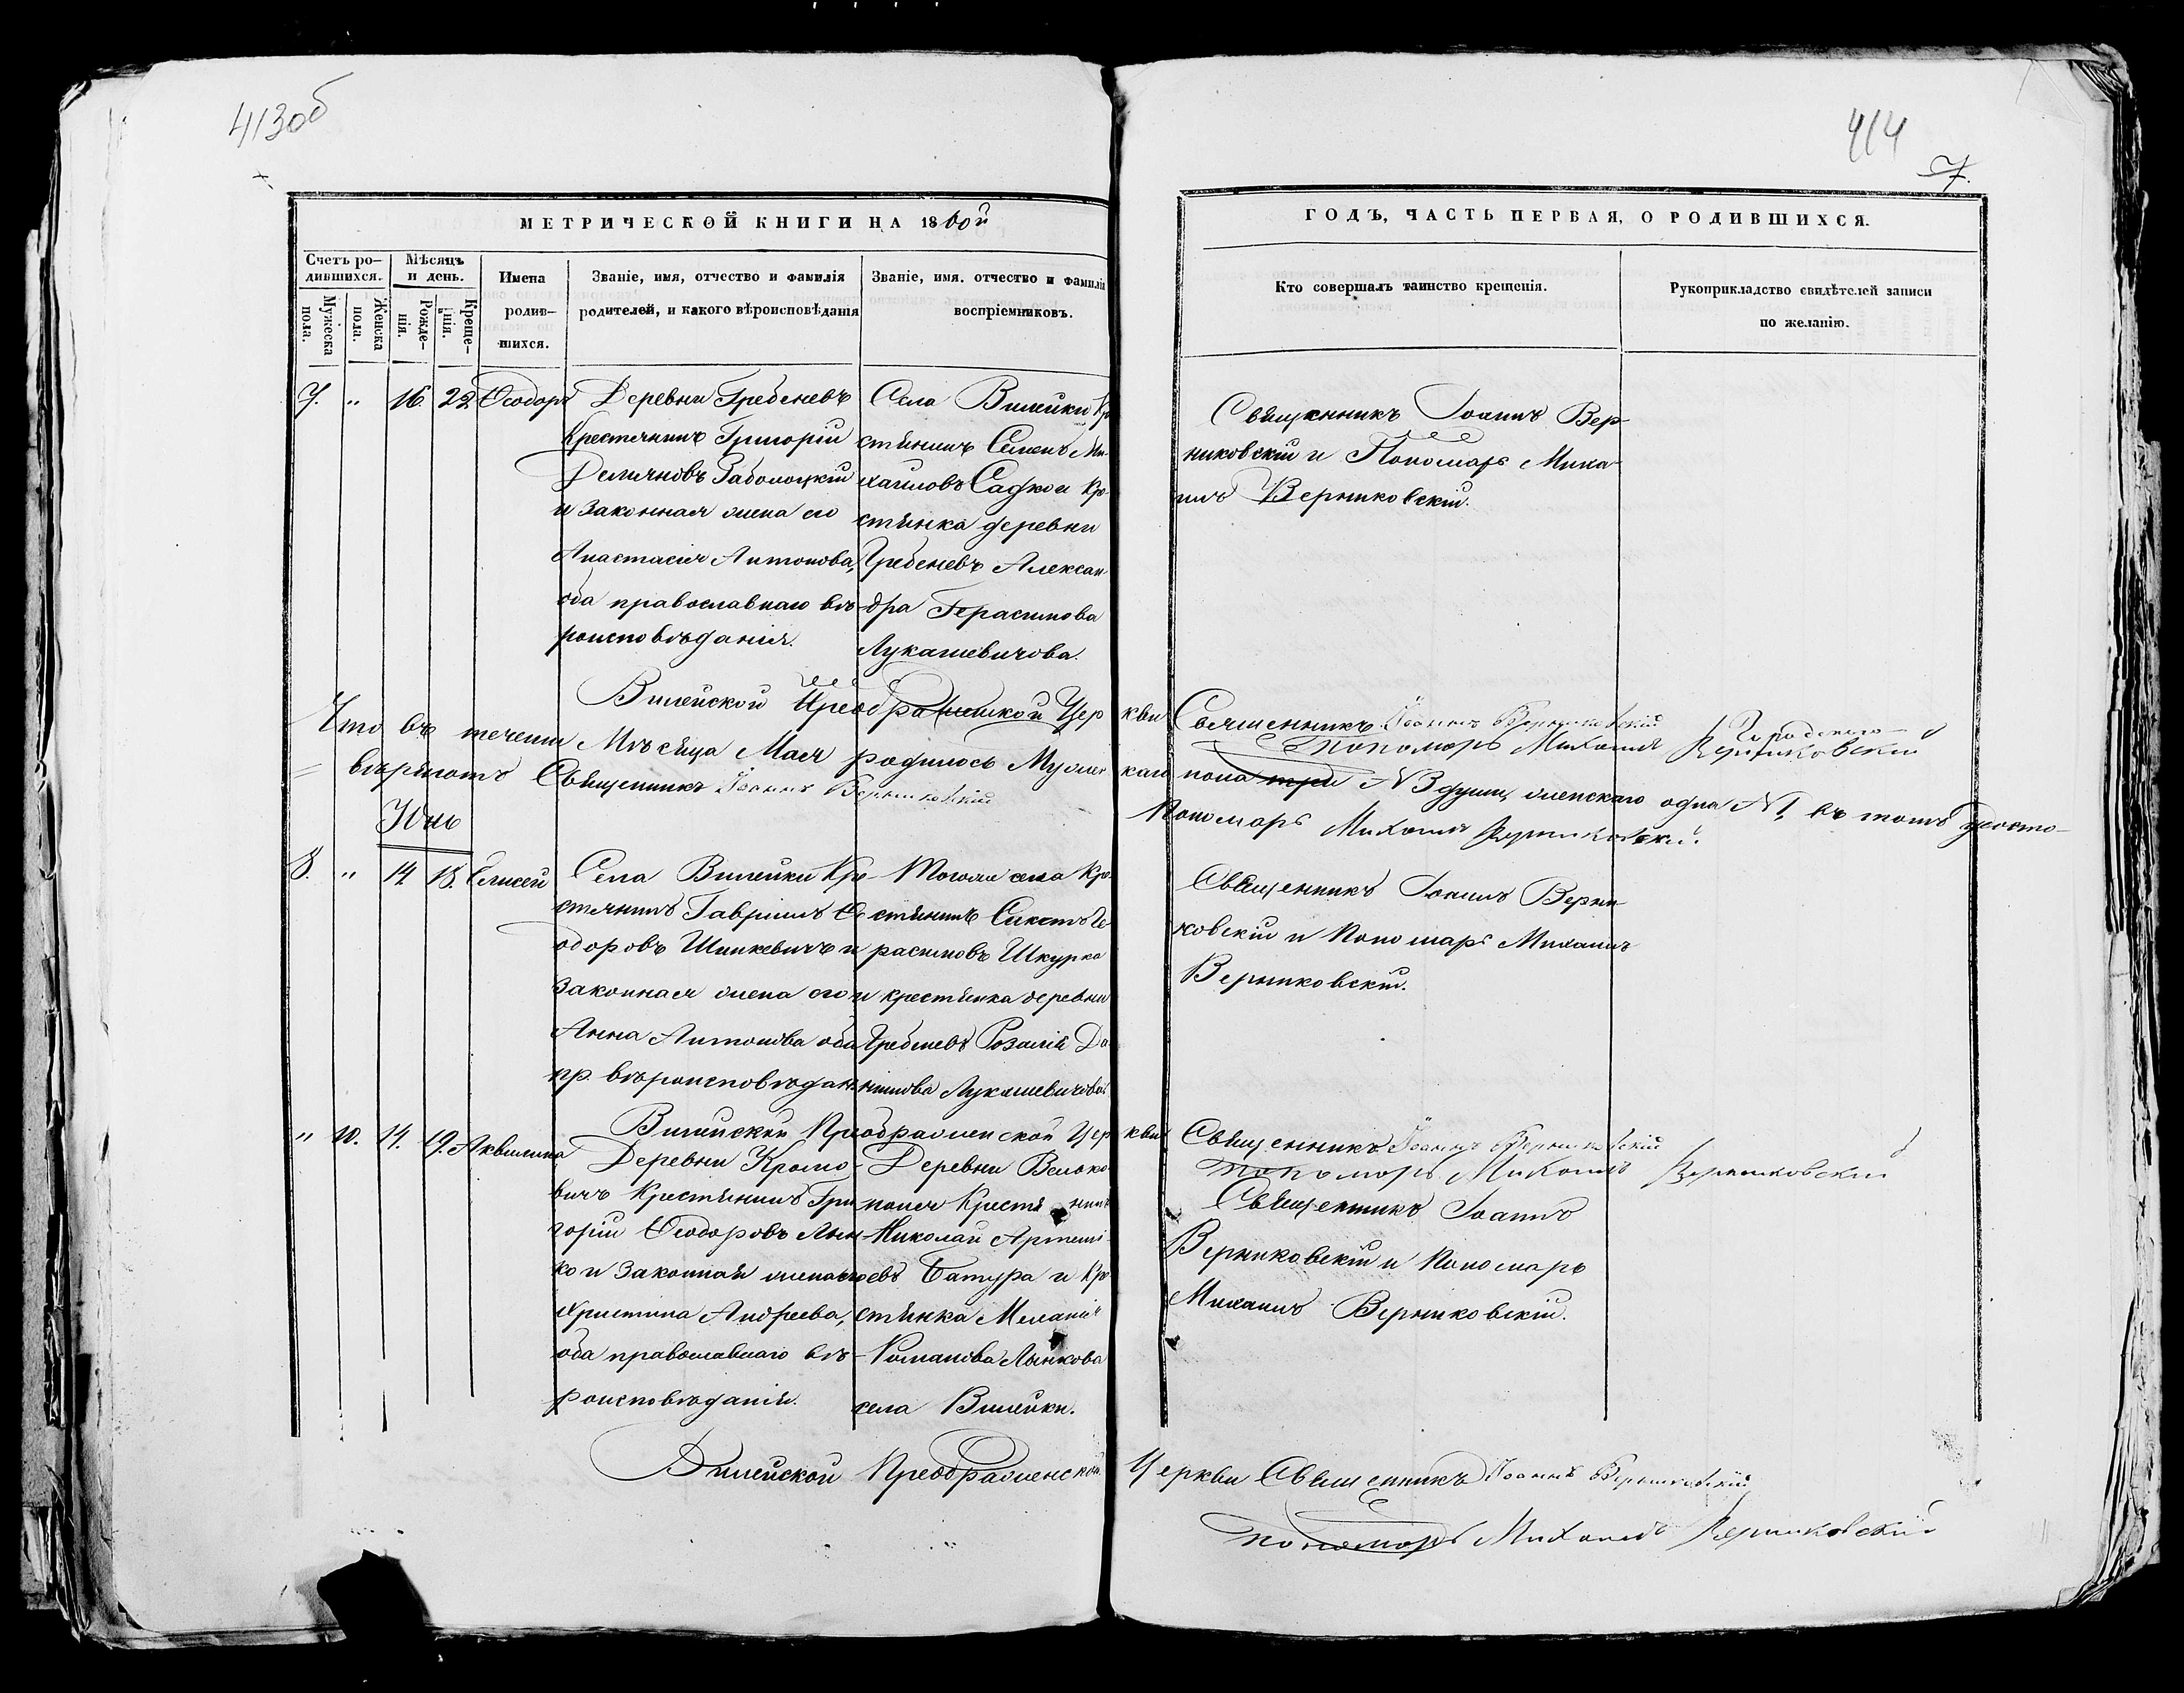 413об
414
7.
МЕТРИЧЕСКОЙ КНИГИ НА 1860й
ГОДЪ, ЧАСТЬ ПЕРВАЯ, О РОДИВШИХСЯ.
Счетъ ро-
дившихся.
Мужеска
пола.
Женска
пола.
Мѣсяцъ
и день.
Рожде-
нія.
Креще-
нія.
Имена
родив-
шихся.
Званіе, имя, отчество и фамилія
родителей, и какого вѣроисповѣданія
Званіе, имя. отчество и фамилія
воспріемниковъ.
Кто совершалъ таинство крещенія.
Рукоприкладство свидѣтелей записи
по желанію.
7. " 16. 22. Ѳеодоръ
Деревни Гребеневъ
Крестянинъ Григорій
Демяновъ Заболоцкій
и законная жена его
Анастасія Антонова,
оба православнаго вѣ-
роисповѣданія.
Села Вилейки Кр
стянинъ Семенъ Ми-
хаиловъ Садко и Кре-
стянка деревни
Гребеневъ Алексан-
дра Герасимова
Лукашевичова.
Священникъ Іоаннъ Вер-
никовскій и Пономарь Миха-
илъ Верниковскій.
Вилейской Преображенской Церкви Священникъ Іоаннъ Верниковскій
Пономарь Михаилъ Верниковскій
Что въ теченіи Мѣсяца Мая родилось Мужескаго пола три №3 души, женскаго одна №1, въ томъ удосто-
вѣряютъ Священникъ Іоаннъ Верниковскій
Пономарь Михаилъ Верниковскій.
Юнь
8. " 14. 18. Елисей
Села Вилейки Кре-
стянинъ Гавріилъ Ѳе
одоровъ Шинкевичъ и
законная жена его
Анна Антонова оба
пр. вѣроисповѣдан.
Тогоже села Кре-
стянинъ Сикстъ Ге
расимовъ Шкурка
и крестянка деревни
Гребеневъ Розалія Да-
нилова Лукашевичова
Священникъ Іоаннъ Верни-
ковскій и Пономарь Михаилъ
Верниковскій.
Вилейской Преображенской Церкви Священникъ Іоаннъ Верниковскій
Пономарь Михаилъ Верниковскій
" 10. 14. 19. Аквилина
Деревни Кромо-
вичъ Крестянинъ Гри
горій Ѳеодоровъ Лын-
ко и законная жена его
Христина Андреева,
оба православнаго вѣ-
роисповѣданія.
Деревни Велько-
полея Крестянинъ
Николай Артемі-
евъ Батура и Кре-
стянка Меланія
Романова Лынкова
села Вилейки.
Священникъ Іоаннъ
Верниковскій и Пономарь
Михаилъ Верниковскій.
Вилейской Преображенской Церкви Священникъ Іоаннъ Верниковскій
Пономарь Михаилъ Верниковскій